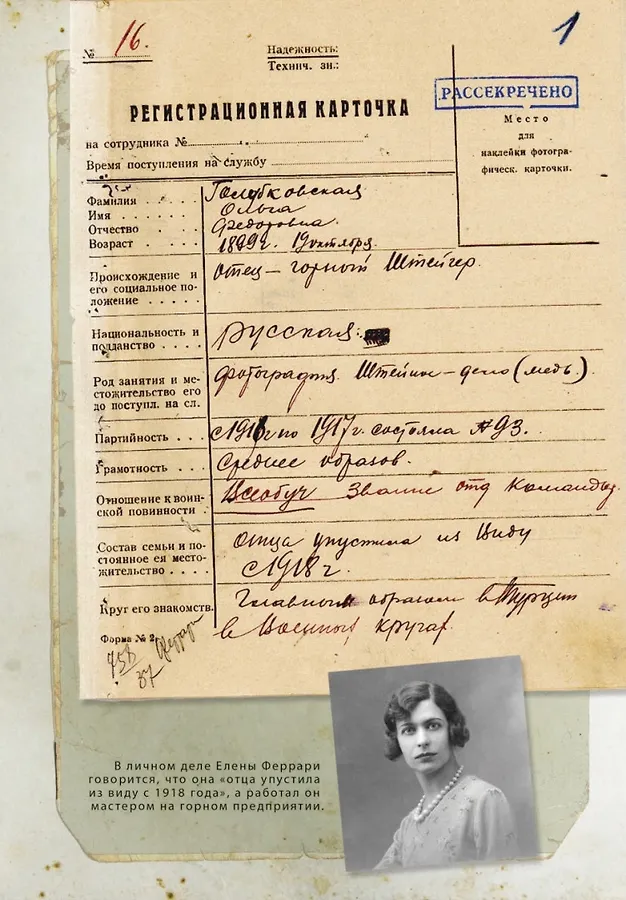 № 16.
Надежность:
Технич. зн.:
1
РАССЕКРЕЧЕНО
РЕГИСТРАЦИОННАЯ КАРТОЧКА
Место
для
наклейки фотогра-
фическ. карточки.
на сотрудника №
Время поступления на службу
Фамилия Голубковская
Имя Ольга
Отчество Федоровна
Возраст 1899 г. 19 октября.
Происхождение и
его социальное по-
ложение
отец – горный Штейгер.
Национальность и
подданство
русская.
Род занятия и ме-
стожительство его
до поступл. на сл.
фотография. – дело (медь).
Партийность с 1916 г по 1917 г. состояла
Грамотность Среднее образов.
Отношение к воин-
ской повинности
Всеобуч Звание отд Команды.
Состав семьи и по-
стоянное ея место-
жительство
Отца упустила из виду
с 1918 г.
Круг его знакомств.
Главным образом в Турции
в Военных кругах.
Форма № 2
Феррари
37
В личном деле Елены Феррари
говорится, что она «отца упустила
из виду с 1918 года», а работал он
мастером на горном предприятии.